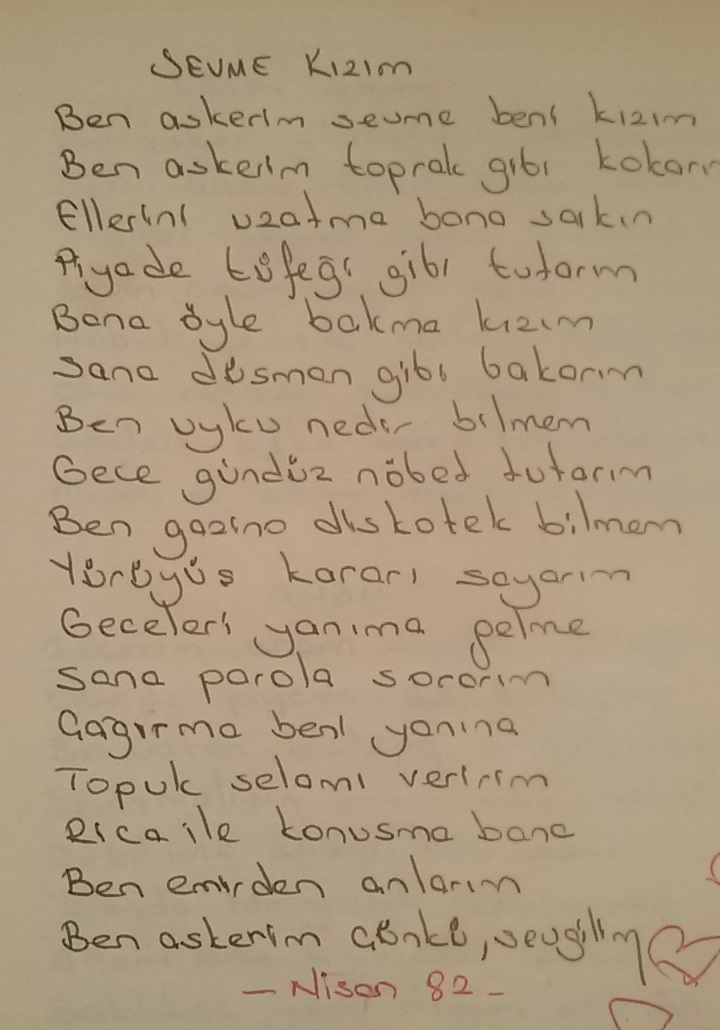 SEVME KIZIM
Ben askerim sevme beni kızım
Ben askerim toprak gibi kokarım
Ellerini uzatma bana sakın
Piyade tüfeği gibi tutarım
Bana öyle bakma kızım
Sana düsman gibi bakarım
Ben uyku nedir bilmem
Gece gündüz nöbet tutarım
Ben gazino diskotek bilmem
Yürüyüs kararı sayarım
Geceleri yanıma gelme
Sana parola sorarım
Çağırma beni yanına
Topuk selamı veririm
Rica ile konusma bana
Ben emirden anlarım
Ben askerim çünkü, sevgilim
- Nisan 82 -